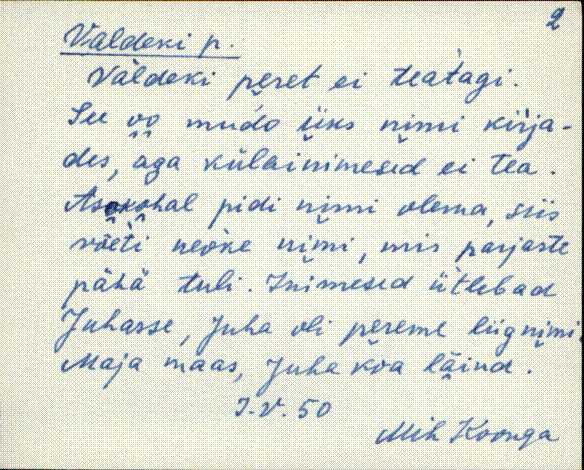 2
Valdeki p.
Valdeki peret ei teatagi.
See oo mudo üks nimi kirja-
des, aga külainimesed ei tea.
Asokohal pidi nimi olema, siis
võeti neoke nimi, mis parjaste
pähä tuli. Inimesed ütlebad
Juhasse, Juha oli pereme liignimi.
Maja maas, Juha koa läind.
I.V.50
Mih Koonga